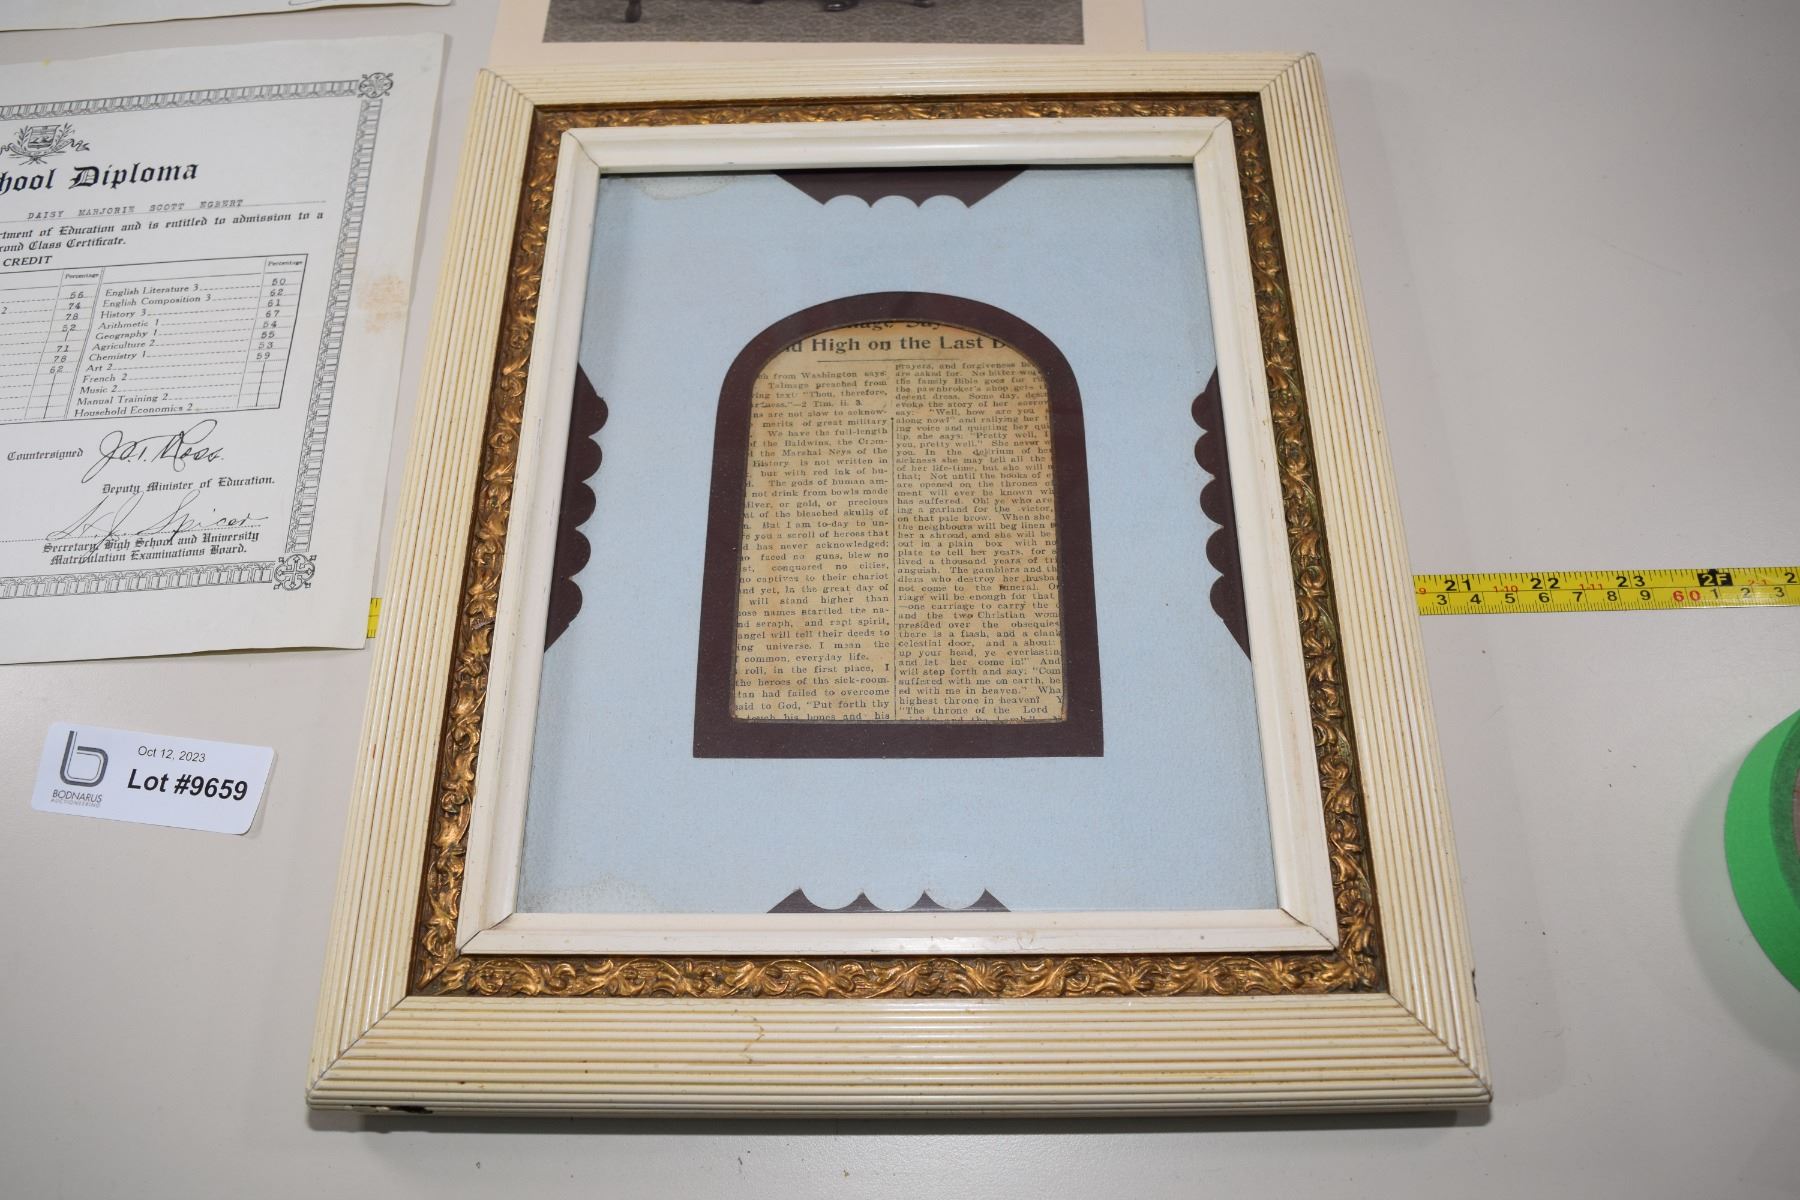 hool Diploma
DAISY MARJORIE SCOTT EGBERT
rtment of Education and is entitled to admission to a
cond Class Certificate.
CREDIT
Percentage
Percentage
56 English Literature 3 50
2 74 English Composition 3 62
78 History 3 61
52 Arithmetic 1 67
Geography 1 54
71 Agriculture 2 55
78 Chemistry 1 53
62 Art 2 59
French 2
Music 2
Manual Training 2
Household Economics 2
Countersigned
Deputy Minister of Education.
Secretary, High School and University
Matriculation Examinations Board.
b
BODNARUS
AUCTIONEERING
Oct 12, 2023
Lot #9659
High on the Last
from Washington says:
Talmage preached from
text: "Thou, therefore,
2 Tim. ii. 3.
are not slow to acknow-
merits of great military
We have the full-length
f the Baldwins, the Crom-
the Marshal Neys of the
History is not written in
but with red ink of hu-
The gods of human am-
not drink from bowls made
silver, or gold, or precious
of the bleached skulls of
But I am to-day to un-
you a scroll of heroes that
has never acknowledged;
faced no guns, blew no
conquered no cities,
no captives to their chariot
and yet, in the great day of
will stand higher than
names startled the na-
seraph, and rapt spirit,
angel will tell their deeds to
universe. I mean the
common, everyday life.
roll, in the first place, I
the heroes of the sick-room.
had failed to overcome
said to God, "Put forth thy
touch his bones and his
prayers, and forgiveness
are asked for. No bitter
the family Bible goes for
the pawnbroker's shop gets
decent dress. Some day,
evoke the story of her
say: "Well, how are you
along now?" and rallying her
ing voice and quieting her
lip, she says: "Pretty well, I
you, pretty well." She never
you. In the delirium of her
sickness she may tell all the
of her life-time, but she will
that; Not until the books of
are opened on the thrones of
ment will ever be known
has suffered. Oh! ye who are
ing a garland for the victor,
on that pale brow. When she
the neighbours will beg linen
her a shroud, and she will be
out in a plain box with no
plate to tell her years, for
lived a thousand years of
anguish. The gamblers and
dlers who destroy her
not come to the funeral.
riage will be enough for that
—one carriage to carry the
and the two Christian
presided over the obsequies
there is a flash, and a clank
celestial door, and a shout:
up your head, ye everlastin
and let her come in!" And
will step forth and say: "Com
suffered with me on earth, be
ed with me in heaven." Wha
highest throne in heaven?
"The throne of the Lord
21 22 23 2F
3 4 5 6 7 8 9 60 1 2 3